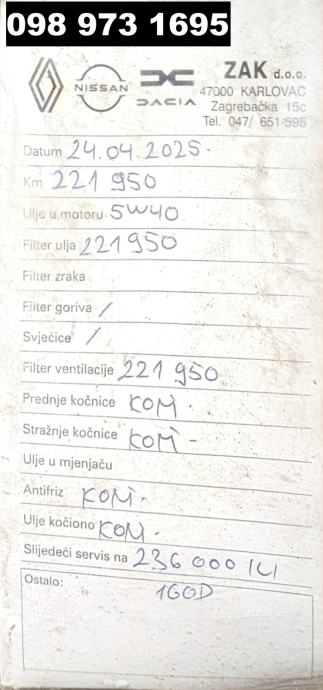 098 973 1695
NISSAN
DACIA
ZAK d.o.o.
47000 KARLOVAC
Zagrebačka 15c
Tel. 047/ 651-595
Datum 24.04.2025.
Km 221 950
Ulje u motoru 5W40
Filter ulja 221950
Filter zraka
Filter goriva /
Svjećice /
Filter ventilacije 221 950
Prednje kočnice KOM.
Stražnje kočnice KOM -
Ulje u mjenjaču
Antifriz KOM.
Ulje kočiono KOM.
Slijedeći servis na 236 000 ILI
Ostalo: 1GOD